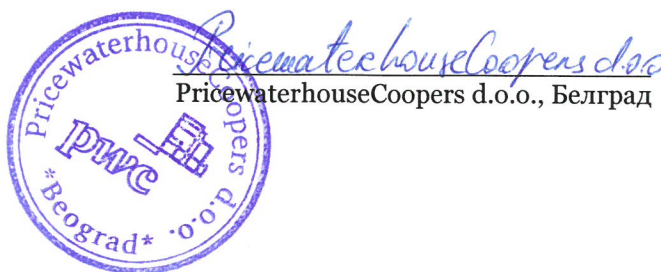 PricewaterhouseCoopers d.o.o.
PricewaterhouseCoopers d.o.o., Белград
PricewaterhouseCoopers d.o.o.
pwc
*Beograd*